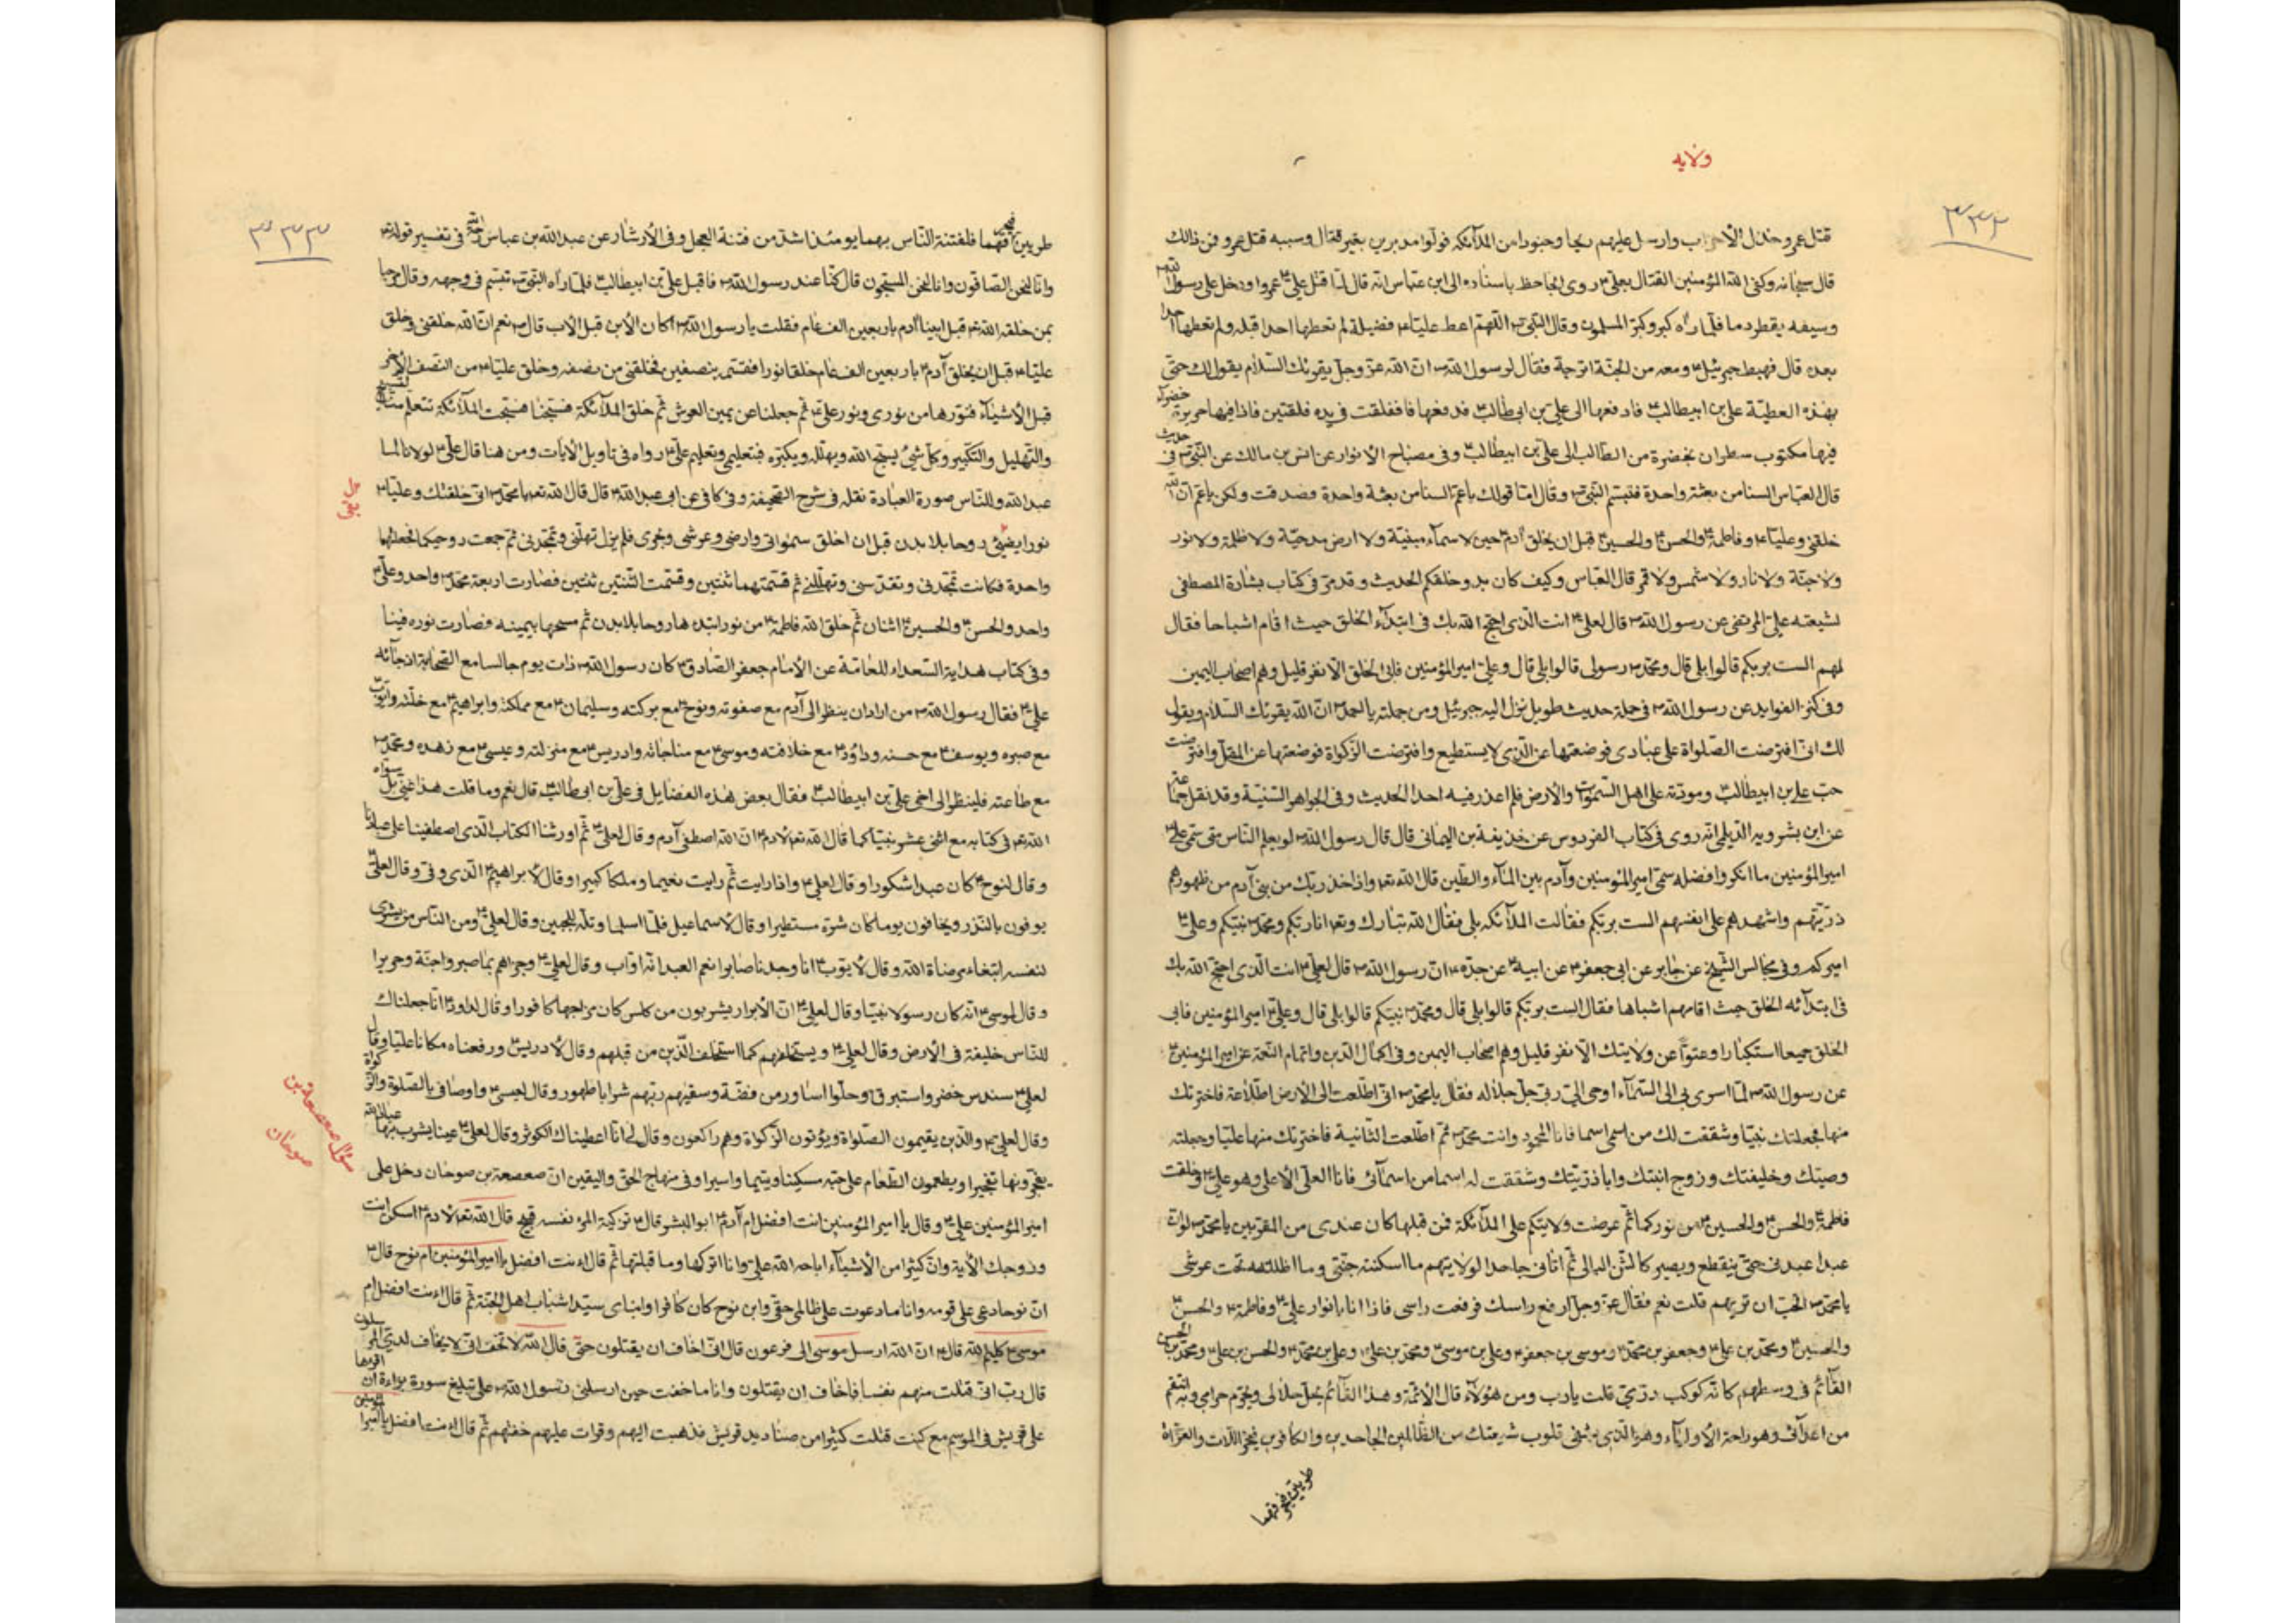 ولايه
٣٣٢
قتل عمرو خذل الأحزاب وارسل عليهم ريحا وجنودا من الملآئكه فولوا مدبرين بغير قتال وسببه قتل عمرو فمن ذالك
قال سبحانه وكفى الله المؤمنين القتال بعلى ٣ روى الجاحظ باسناده الى ابن عباس انه قال لما قتل على ٣ عمروا ودخل على رسول الله ٣
وسيفه يقطر دما فلما راه كبر وكبر المسلمون وقال النبى ٣ اللهم اعط عليا ٣ فضيلة لم تعطها احدا قبله ولم تعطها احدا
بعده قال فهبط جبرئيل ٣ ومعه من الجنة اترجة فقال لرسول الله ٣ ان الله عز وجل يقرئك السلام يقول لك حتى
بهذه العطية على بن ابيطالب ٣ فادفعها الى على بن ابى طالب ٣ فدفعها فانفلقت فى يده فلقتين فاذا فيها حريرة خضراء
فيها مكتوب سطران بخضرة من الطالب الى على بن ابيطالب ٣ وفى مصباح الانوار عن انس بن مالك عن النبى ٣ فى حديث
قال العباس السنا من بعثة واحدة فتبسم النبى ٣ وقال اما قولك ياعم السنا من بعثة واحدة فصدقت ولكن ياعم ان الله
خلقنى وعليا ٣ وفاطمة ٣ والحسن ٣ والحسين ٣ قبل ان يخلق آدم ٣ حين لا سمآء مبنية ولا ارض مدحية ولا ظلمة ولا نور
ولا جنة ولا نار ولا شمس ولا قمر قال العباس وكيف كان بدو خلقكم الحديث وقد مر فى كتاب بشارة المصطفى
لشيعته على المرتضى عن رسول الله ٣ قال لعلى ٣ انت الذى احتج الله بك فى ابتدآء الخلق حيث اقام اشباحا فقال
لهم الست بربكم قالوا بلى قال ومحمد ٣ رسولى قالوا بلى قال وعلى امير المؤمنين فابى الخلق الا نفر قليل وهم اصحاب اليمين
وفى كنز الفوايد عن رسول الله ٣ فى جملة حديث طويل نزل اليه جبرئيل ومن جملته يا احمد ٣ ان الله يقرئك السلام ويقول
لك انى افترضت الصلواة على عبادى فوضعتها عن الذى لا يستطيع وافترضت الزكواة فوضعتها عن المقل وافترضت
حب على بن ابيطالب ٣ ومودته على اهل السموات والأرض فلم اعذر فيه احدا الحديث وفى الجواهر السنية وقد نقل جماعة
عن ابن بشرويه الديلمى انه روى فى كتاب الفردوس عن خذيفة بن اليمانى قال قال رسول الله ٣ لو يعلم الناس متى سمى على ٣
امير المؤمنين ما انكروا فضله سمى امير المؤمنين وآدم بين المآء والطين قال الله تعه واذ اخذ ربك من بنى آدم من ظهورهم
ذريتهم واشهدهم على انفسهم الست بربكم فقالت الملآئكه بلى فقال الله تبارك وتعه انا ربكم ومحمد ٣ نبيكم وعلى ٣
اميركم وفى مجالس الشيخ عن جابر عن ابى جعفر ٣ عن ابيه ٣ عن جده ٣ ان رسول الله ٣ قال لعلى ٣ انت الذى احتج الله بك
فى ابتدآئه الخلق حيث اقامهم اشباها فقال الست بربكم قالوا بلى قال ومحمد ٣ نبيكم قالوا بلى قال وعلى ٣ امير المؤمنين فابى
الخلق جميعا استكبارا وعتوا عن ولايتك الا نفر قليل وهم اصحاب اليمين وفى اكمال الدين واتمام النعمة عن امير المؤمنين ٣
عن رسول الله ٣ لما اسرى بى الى السمآء اوحى الى ربى جل جلاله فقال يا محمد ٣ انى اطلعت الى الارض اطلاعة فاخترتك
منها فجعلتك نبيا وشققت لك من اسمى اسما فانا المحمود وانت محمد ٣ ثم اطلعت الثانية فاخترت منها عليا وجعلته
وصيك وخليفتك وزوج ابنتك وابا ذريتك وشققت له اسما من اسمآئى فانا العلى الأعلى وهو على ٣ وخلقت
فاطمة ٣ والحسن ٣ والحسين ٣ من نوركما ثم عرضت ولايتكم على الملآئكة فمن قبلها كان عندى من المقربين يا محمد ٣ لو ان
عبدا عبدنى حتى ينقطع ويصير كالشن البالى ثم اتانى جاحدا لولايتهم ما اسكنته جنتى وما اظللته تحت عرشى
يا محمد ٣ اتحب ان تريهم قلت نعم فقال عز وجل ارفع راسك فرفعت راسى فاذا انا بانوار على ٣ وفاطمة ٣ والحسن ٣
والحسين ٣ ومحمد بن على ٣ وجعفر بن محمد ٣ وموسى بن جعفر ٣ وعلى بن موسى ٣ ومحمد بن على ٣ وعلى بن محمد ٣ والحسن بن على ٣ ومحمد بن الحسن
القآئم فى وسطهم كانه كوكب درى قلت يارب ومن هؤلآء قال الأئمة وهذا القآئم يحل حلالى ويحرم حرامى وبه انتقم
من اعدآئى وهو راحة الأوليآء وهو الذى يشفى قلوب شيعتك من الظالمين الجاحدين والكافرين فيخرج اللات والعزى
طريين فيحرقهما
٣٣٣
طريين فيحرقهما فلفتنة الناس بهما يومئذ اشد من فتنة العجل وفى الأرشاد عن عبد الله بن عباس فى تفسير قوله تعه
وانا لنحن الصافون وانا لنحن المسبحون قال كنا عند رسول الله ٣ فاقبل على بن ابيطالب ٣ فلما رآه النبى ٣ تبسم فى وجهه وقال مرحبا
بمن خلقه الله تعه قبل ابينا آدم باربعين الف عام فقلت يا رسول الله ٣ اكان الابن قبل الأب قال ٣ نعم ان الله خلقنى وخلق
عليا ٣ قبل ان يخلق آدم ٣ باربعين الف عام خلقا نورا فقسمه بنصفين فخلقنى من نصفه وخلق عليا ٣ من النصف الآخر
قبل الأشيآء فنورها من نورى ونور على ٣ ثم جعلنا عن يمين العرش ثم خلق الملآئكة فسبحنا فسبحت الملآئكة تتعلم منا التسبيح
والتهليل والتكبير وكل شئ يسبح الله ويهلله ويكبره فبتعليمى وتعليم على ٣ رواه فى تاويل الآيات ومن هنا قال على ٣ لولانا لما
عبد الله وللناس صورة العبادة نقله فى شرح الصحيفة وفى كافى عن ابى عبد الله ٣ قال قال الله تعه يا محمد ٣ انى خلقتك وعليا ٣
نورا يعنى روحا بلا بدن قبل ان اخلق سمواتى وارضى وعرشى وبحرى فلم يزل تهللنى وتمجدنى ثم جمعت روحيكما فجعلتهما
واحدة فكانت تمجدنى وتقدسنى وتهللنى ثم قسمتهما ثنتين وقسمت الثنتين ثنتين فصارت اربعة محمد ٣ واحد وعلى ٣
واحد والحسن ٣ والحسين ٣ اثنان ثم خلق الله فاطمة ٣ من نور ابتدءها روحا بلا بدن ثم مسحها بيمينه فصارت نوره فينا
وفى كتاب هداية السعداء للعامة عن الأمام جعفر الصادق ٣ كان رسول الله ٣ ذات يوم جالسا مع الصحابة اذ جائه
على ٣ فقال رسول الله ٣ من اراد ان ينظر الى آدم مع صفوته ونوح ٣ مع بركته وسليمان ٣ مع مملكته وابراهيم ٣ مع خلته وايوب ٣
مع صبره ويوسف ٣ مع حسنه وداؤد ٣ مع خلافته وموسى ٣ مع مناجاته وادريس ٣ مع منزلته وعيسى ٣ مع زهده ومحمد ٣
مع طاعته فلينظر الى اخى على بن ابيطالب ٣ فقال بعض هذه الفضايل فى على بن ابى طالب ٣ قال نعم وما قلت هذا عنى بل سواه
الله تعه فى كتابه مع اثنى عشر نبيا كما قال الله تعه لآدم ٣ ان الله اصطفى آدم وقال لعلى ٣ ثم اورثنا الكتاب الذى اصطفينا على عبادنا
وقال لنوح ٣ كان عبدا شكورا وقال لعلى ٣ واذا رايت ثم رايت نعيما وملكا كبيرا وقال لأبراهيم ٣ الذى وفى وقال لعلى ٣
يوفون بالنذر ويخافون يوما كان شره مستطيرا وقال لأسماعيل فلما اسلما وتله للجبين وقال لعلى ٣ ومن الناس من يشرى
نفسه ابتغاء مرضاة الله وقال لأيوب ٣ انا وجدناه صابرا نعم العبد انه اواب وقال لعلى ٣ وجزاهم بما صبروا جنة وحريرا
وقال لموسى ٣ انه كان رسولا نبيا وقال لعلى ٣ ان الأبرار يشربون من كاس كان مزاجها كافورا وقال لداود ٣ انا جعلناك
للناس خليفة فى الأرض وقال لعلى ٣ ويستخلفهم كما استخلف الذين من قبلهم وقال لأدريس ٣ ورفعناه مكانا عليا وقال
لعلى ٣ سندس خضر واستبرق وحلوا اساور من فضة وسقيهم ربهم شرابا طهورا وقال لعيسى ٣ واوصانى بالصلوة والزكواة
وقال لعلى ٣ والذين يقيمون الصلواة ويؤتون الزكواة وهم راكعون وقال لى انا اعطيناك الكوثر وقال لعلى ٣ عينا يشرب بها عباد الله
يفجرونها تفجيرا ويطعمون الطعام على حبه مسكينا ويتيما واسيرا وفى منهاج الحق واليقين ان صعصعة بن صوحان دخل على
امير المؤمنين على ٣ وقال يا امير المؤمنين انت افضل ام آدم ٣ ابو البشر قال ٣ تزكية المرء نفسه قبيح قال الله تعه لآدم ٣ اسكن انت
وزوجك الأية وان كثيرا من الأشيآء اباحه الله على وانا اتركها وما قبلتها ثم قال اءنت افضل يا امير المؤمنين ام نوح قال ٣
ان نوحا دعى على قومه وانا ما دعوت على ظالمى حقى وابن نوح كان كافرا وابناى سيدا شباب اهل الجنة ثم قال اءنت افضل ام
موسى ٣ كليم الله قال ٣ ان الله ارسل موسى الى فرعون قال انى اخاف ان يقتلون حتى قال الله لا تخف انى لا يخاف لدى المرسلون
قال رب انى قتلت منهم نفسا فاخاف ان يقتلون وانا ما خفت حين ارسلنى رسول الله ٣ على تبليغ سورة براءة ان اقرءها
على قريش فى الموسم مع كنت قتلت كثيرا من صناديد قريش فذهبت اليهم وقرات عليهم خفتهم ثم قال اءنت افضل يا امير المؤمنين
سؤال صعصعة بن
صوحان